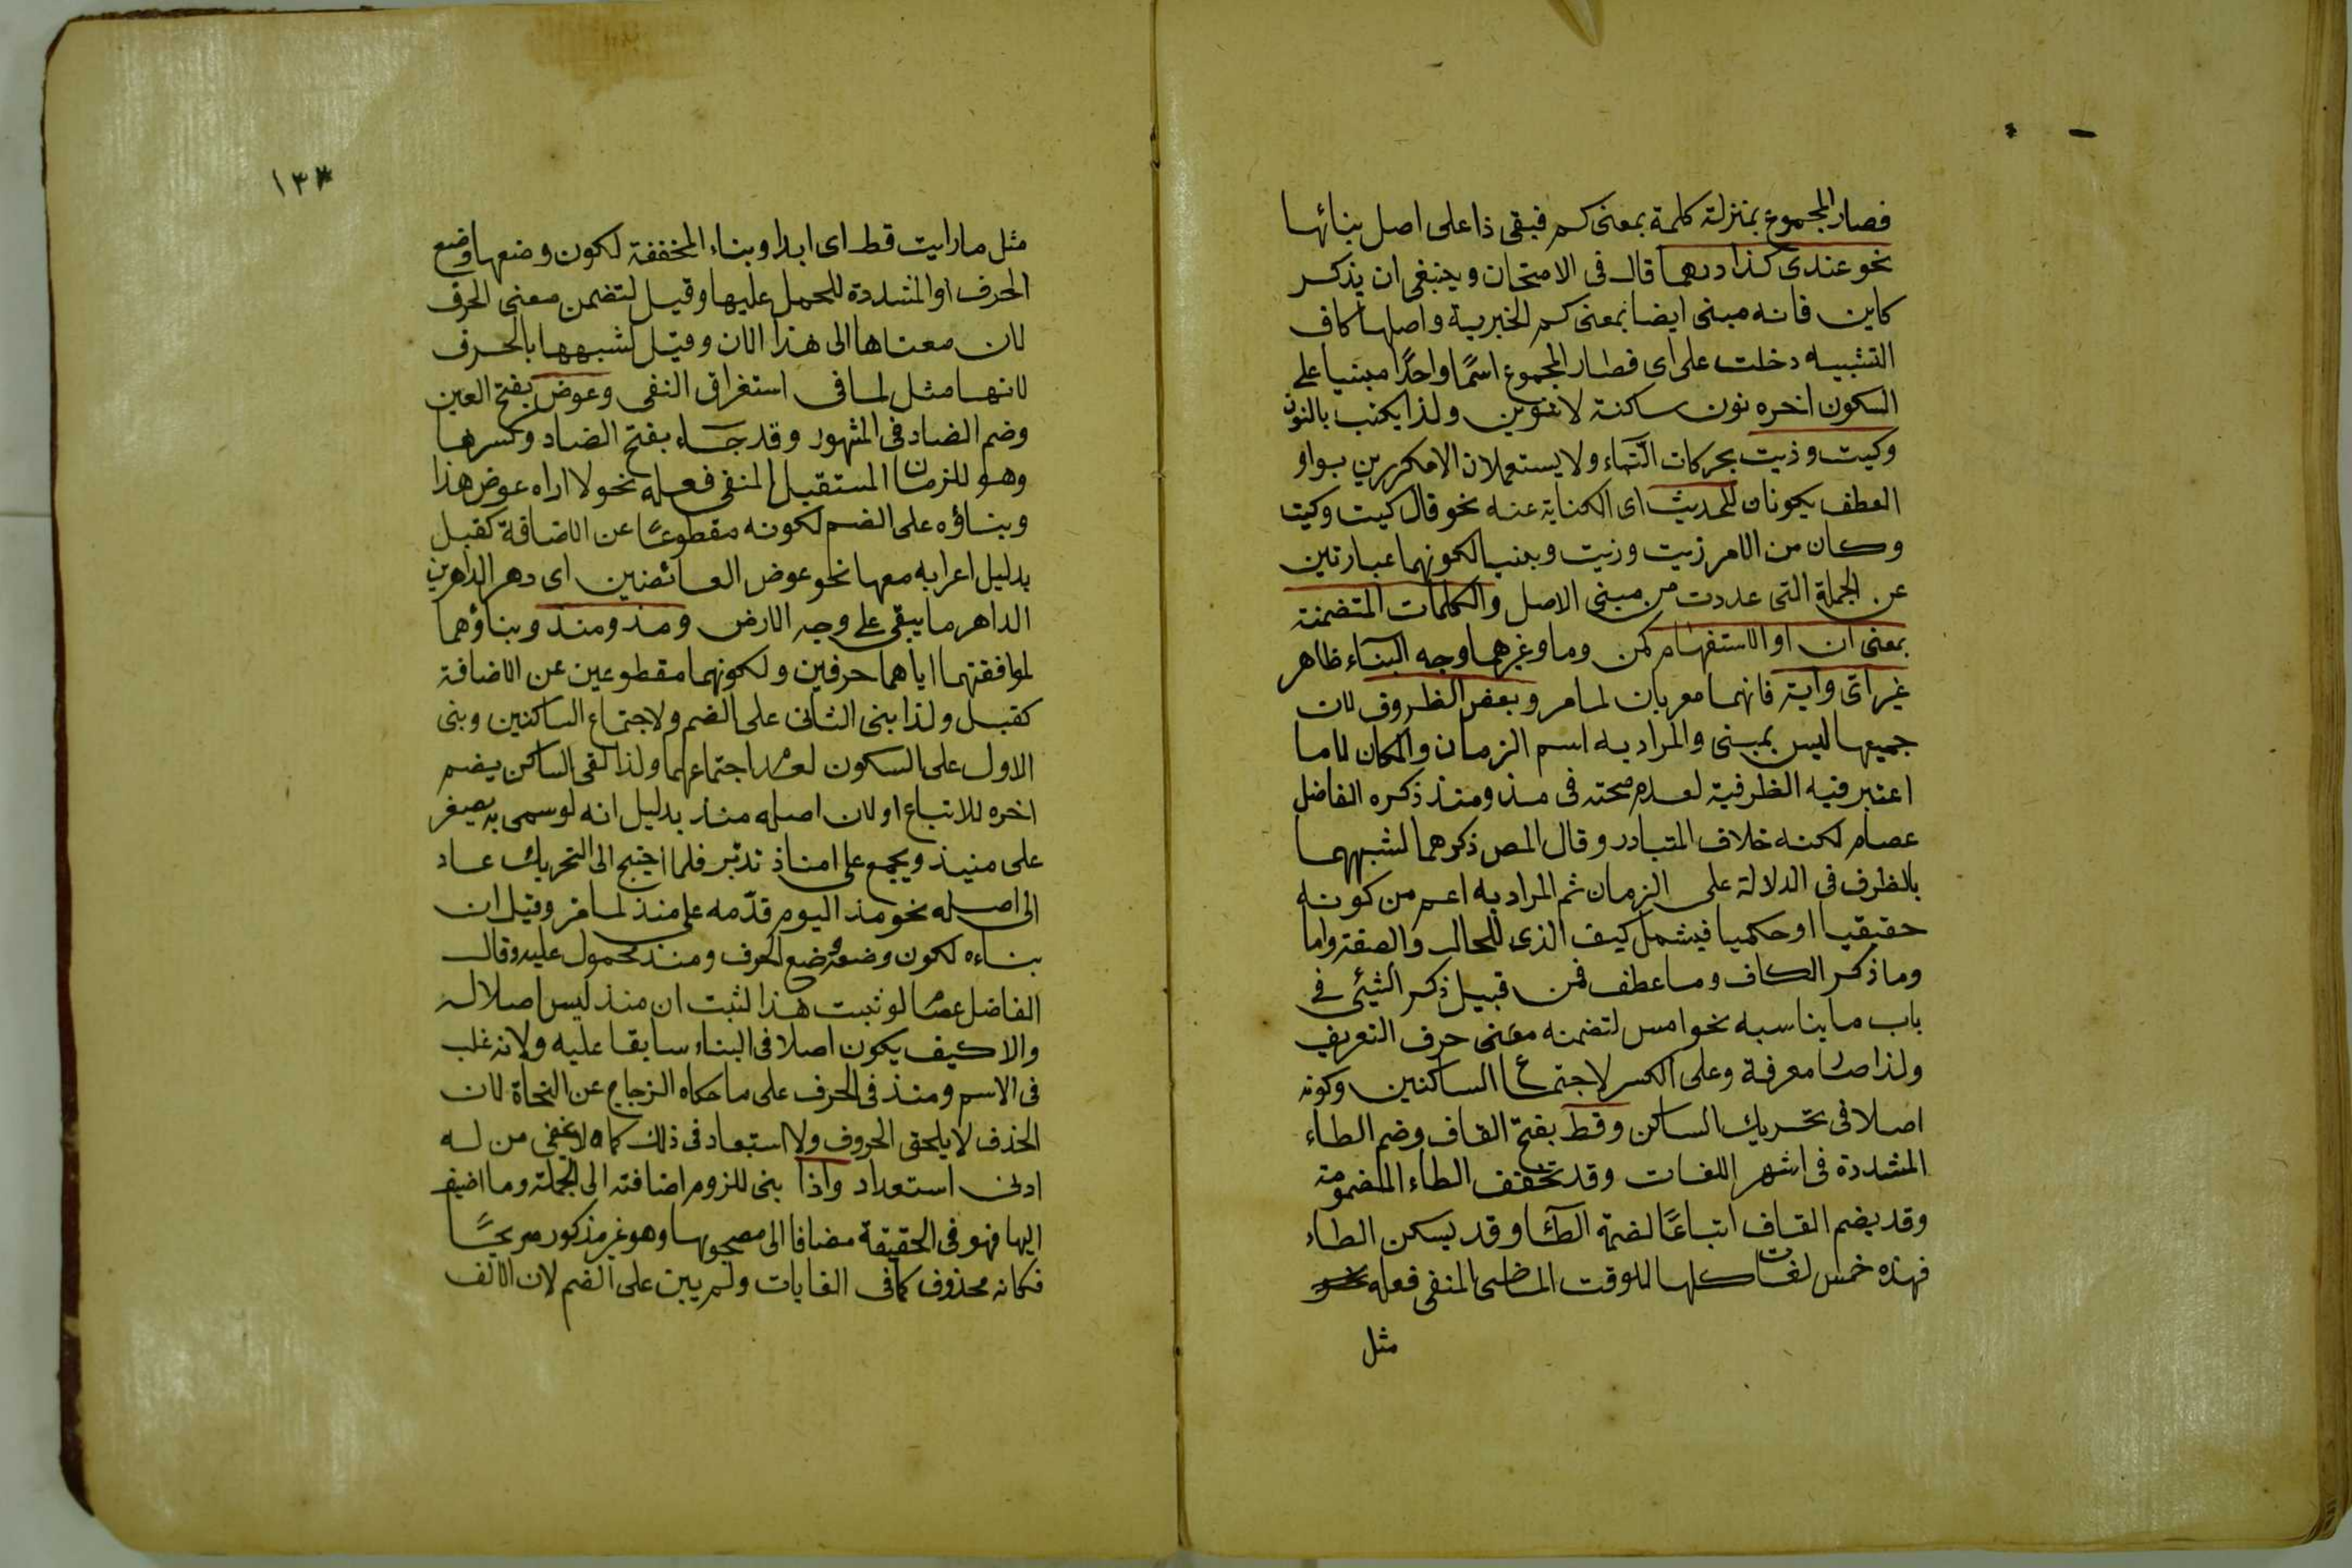 فصار المجموع بمنزلة كلمة بمعنى كم فبقى ذا على اصل بنائها
نحو عندى كذا درهما قال فى الامتحان وينبغى ان يذكر
كاين فانه مبنى ايضا بمعنى كم الخبرية واصلها كاف
التشبيه دخلت على اى فصار المجموع اسمًا واحدًا مبنيا على
السكون اخره نون ساكنة لا تنوين ولذا يكتب بالنون
وكيت وذيت بحركات التاء ولا يستعملان الا مكررين بواو
العطف يكونان للحديث اى الكناية عنه نحو قال كيت وكيت
وكان من الامر زيت وزيت وبنيا لكونهما عبارتين
عن الجملة التى عددت من مبنى الاصل والكلمات المتضمنة
بمعنى ان او الاستفهام كمن وما وغيرهما وجه البناء ظاهر
غير اى واية فانهما معربان لما مر وبعض الظروف لان
جميعها ليس بمبنى والمراد به اسم الزمان والمكان لا ما
اعتبر فيه الظرفية لعدم صحته فى مذ ومنذ ذكره الفاضل
عصام لكنه خلاف المتبادر وقال المص ذكرهما لشبههما
بالظرف فى الدلالة على الزمان ثم المراد به اعم من كونه
حقيقيا او حكميا فيشمل كيف الذى للحال والصفة واما
وما ذكر الكاف وما عطف فمن قبيل ذكر الشئ فى
باب ما يناسبه نحو امس لتضمنه معنى حرف التعريف
ولذا صار معرفة وعلى الكسر لاجتماع الساكنين وكونه
اصلا فى تحريك الساكن وقط بفتح القاف وضم الطاء
المشددة فى اشهر اللغات وقد تخفف الطاء المضمومة
وقد يضم القاف اتباعًا لضمة الطاء وقد يسكن الطاء
فهذه خمس لغات كلها للوقت الماضى المنفى فعله
مثل
١٣٣
مثل ما رايت قط اى ابدا وبناء المخففة لكون وضعها وضع
الحرف او المشددة للحمل عليها وقيل لتضمن معنى الحرف
لان معناها الى هذا الان وقيل لشبهها بالحرف
لانها مثل لما فى استغراق النفى وعوض بفتح العين
وضم الضاد فى المشهور وقد جاء بفتح الضاد وكسرها
وهو للزمان المستقبل المنفى فعله نحو لا اراه عوض هذا
وبناؤه على الضم لكونه مقطوعًا عن الاضافة كقبل
بدليل اعرابه معها نحو عوض العائضين اى دهر الداهرين
الداهر ما يبقى على وجه الارض ومذ ومنذ وبناؤهما
لموافقتهما اياهما حرفين ولكونهما مقطوعين عن الاضافة
كقبل ولذا بنى الثانى على الضم ولاجتماع الساكنين وبنى
الاول على السكون لعدم اجتماعهما ولذا لقى الساكن يضم
اخره للاتباع او لان اصله منذ بدليل انه لو سمى به يصغر
على منيذ ويجمع على امناذ تدبر فلما احتيج الى التحريك عاد
الى اصله نحو مذ اليوم قدمه على منذ لما مر وقيل ان
بناءه لكون وضعه وضع الحرف ومنذ محمول عليه وقال
الفاضل عصام لو ثبت هذا لثبت ان منذ ليس اصلا له
والا كيف يكون اصلا فى البناء سابقا عليه ولانه غلب
فى الاسم ومنذ فى الحرف على ما حكاه الزجاج عن النحاة لان
الحذف لا يلحق الحروف ولا استبعاد فى ذلك كما لا يخفى من له
ادنى استعداد واذا بنى للزوم اضافته الى الجملة وما اضيف
اليها فهو فى الحقيقة مضافا الى مصحوبها وهو غير مذكور صريحًا
فكانه محذوف كما فى الغايات ولم يبن على الضم لان الالف